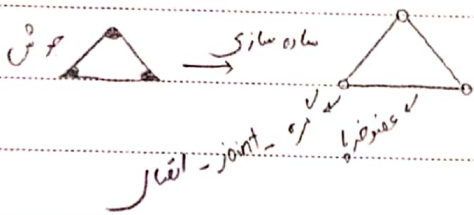 جوش
ساده سازی
عضو خرپا
گره - joint - اتصال